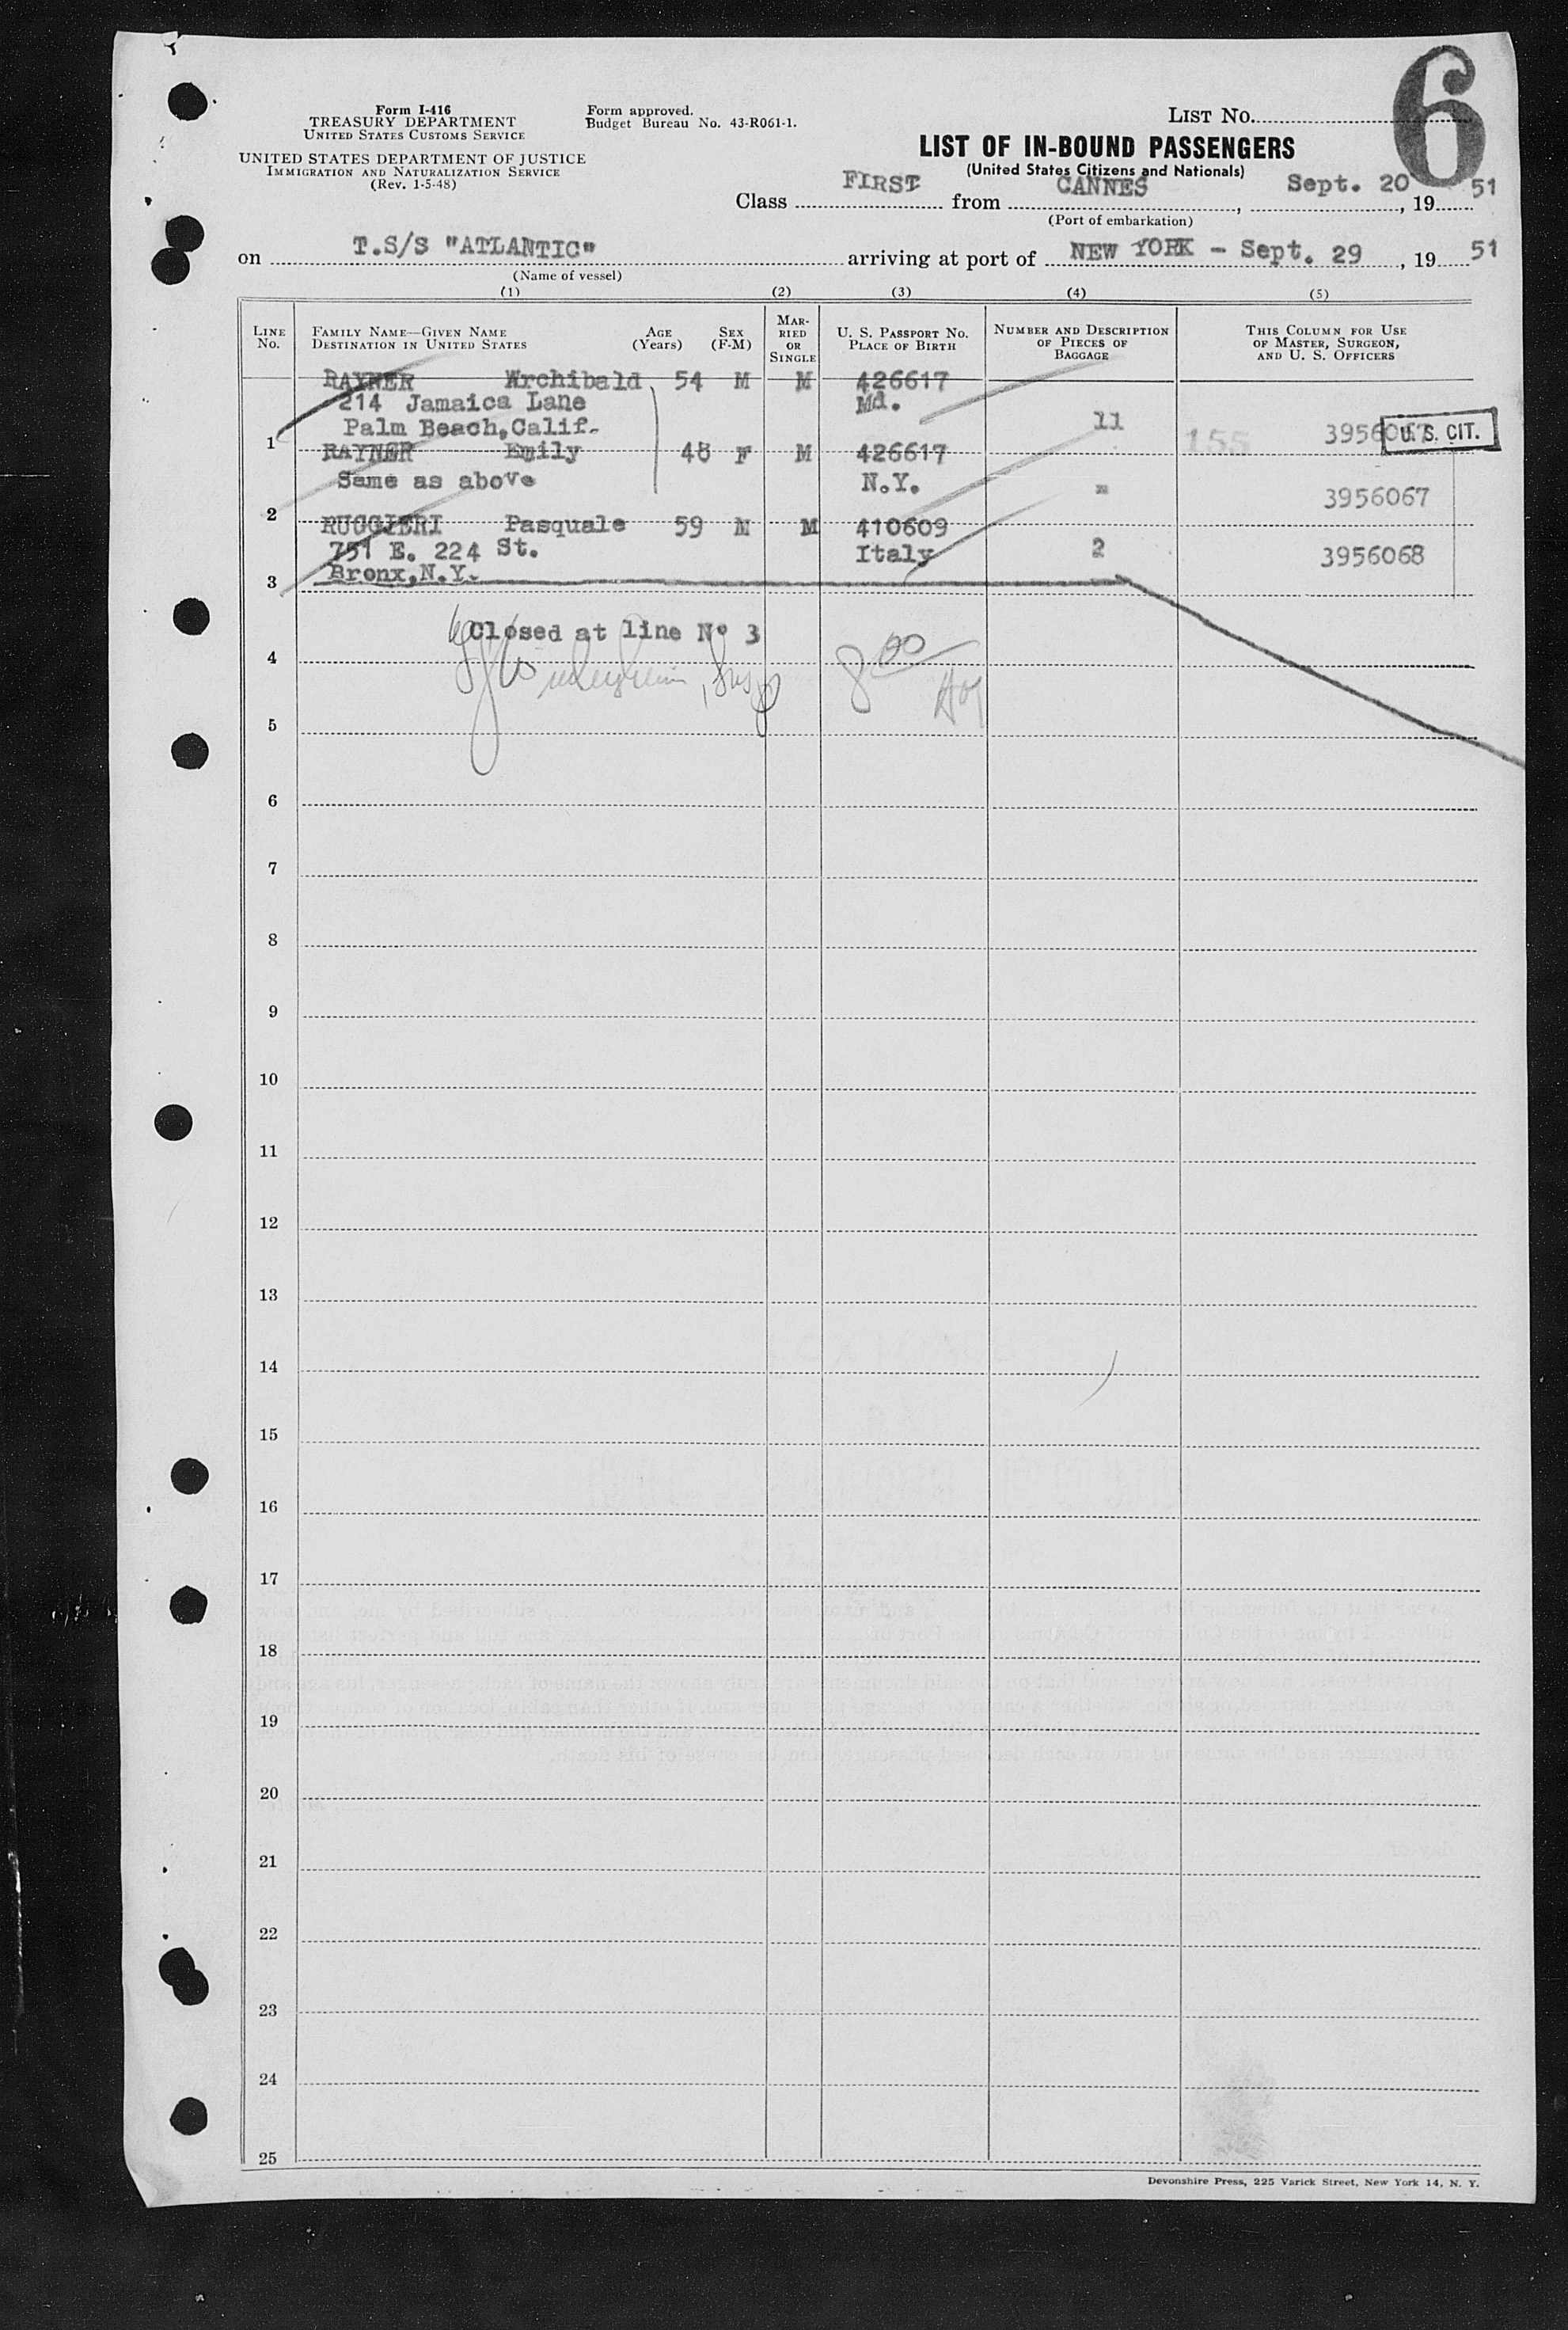 6
Form I-416
TREASURY DEPARTMENT
UNITED STATES CUSTOMS SERVICE
UNITED STATES DEPARTMENT OF JUSTICE
IMMIGRATION AND NATURALIZATION SERVICE
(Rev. 1-5-48)
Form approved.
Budget Bureau No. 43-R061-1.
LIST NO.
LIST OF IN-BOUND PASSENGERS
(United States Citizens and Nationals)
Class FIRST from CANNES, Sept. 20, 19 51
(Port of embarkation)
on T.S/S "ATLANTIC" arriving at port of NEW YORK - Sept. 29, 19 51
(Name of vessel)
(1) (2) (3) (4) (5)
LINE NO.
FAMILY NAME—GIVEN NAME
DESTINATION IN UNITED STATES
AGE (Years)
SEX (F-M)
MARRIED OR SINGLE
U. S. PASSPORT NO.
PLACE OF BIRTH
NUMBER AND DESCRIPTION
OF PIECES OF
BAGGAGE
THIS COLUMN FOR USE
OF MASTER, SURGEON,
AND U. S. OFFICERS
RAYNER Archibald 54 M M 426617
214 Jamaica Lane Md.
Palm Beach, Calif. 11
1 155 3956067 U. S. CIT.
RAYNER Emily 48 F M 426617
Same as above N.Y. " 3956067
2
RUGGIERI Pasquale 59 M M 410609
751 E. 224 St. Italy 2 3956068
Bronx, N.Y.
3
Closed at line Nº 3
8 00
4
5
6
7
8
9
10
11
12
13
14
15
16
17
18
19
20
21
22
23
24
25
Devonshire Press, 225 Varick Street, New York 14, N. Y.